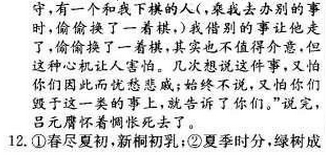 守,有一个和我下棋的人(,乘我去办别的事
时,偷偷换了一着棋,)我借别的事让他走
了,偷偷换了一着棋,其实也不值得介意,但
这种心机让人害怕。几次想说这件事,又怕
你们因此而忧愁悲戚;始终不说,又怕你们
毁于这一类的事上,就告诉了你们。”说完,
吕元膺怀着惆怅死去了。
12.①春尽夏初,新桐初乳;②夏季时分,绿树成